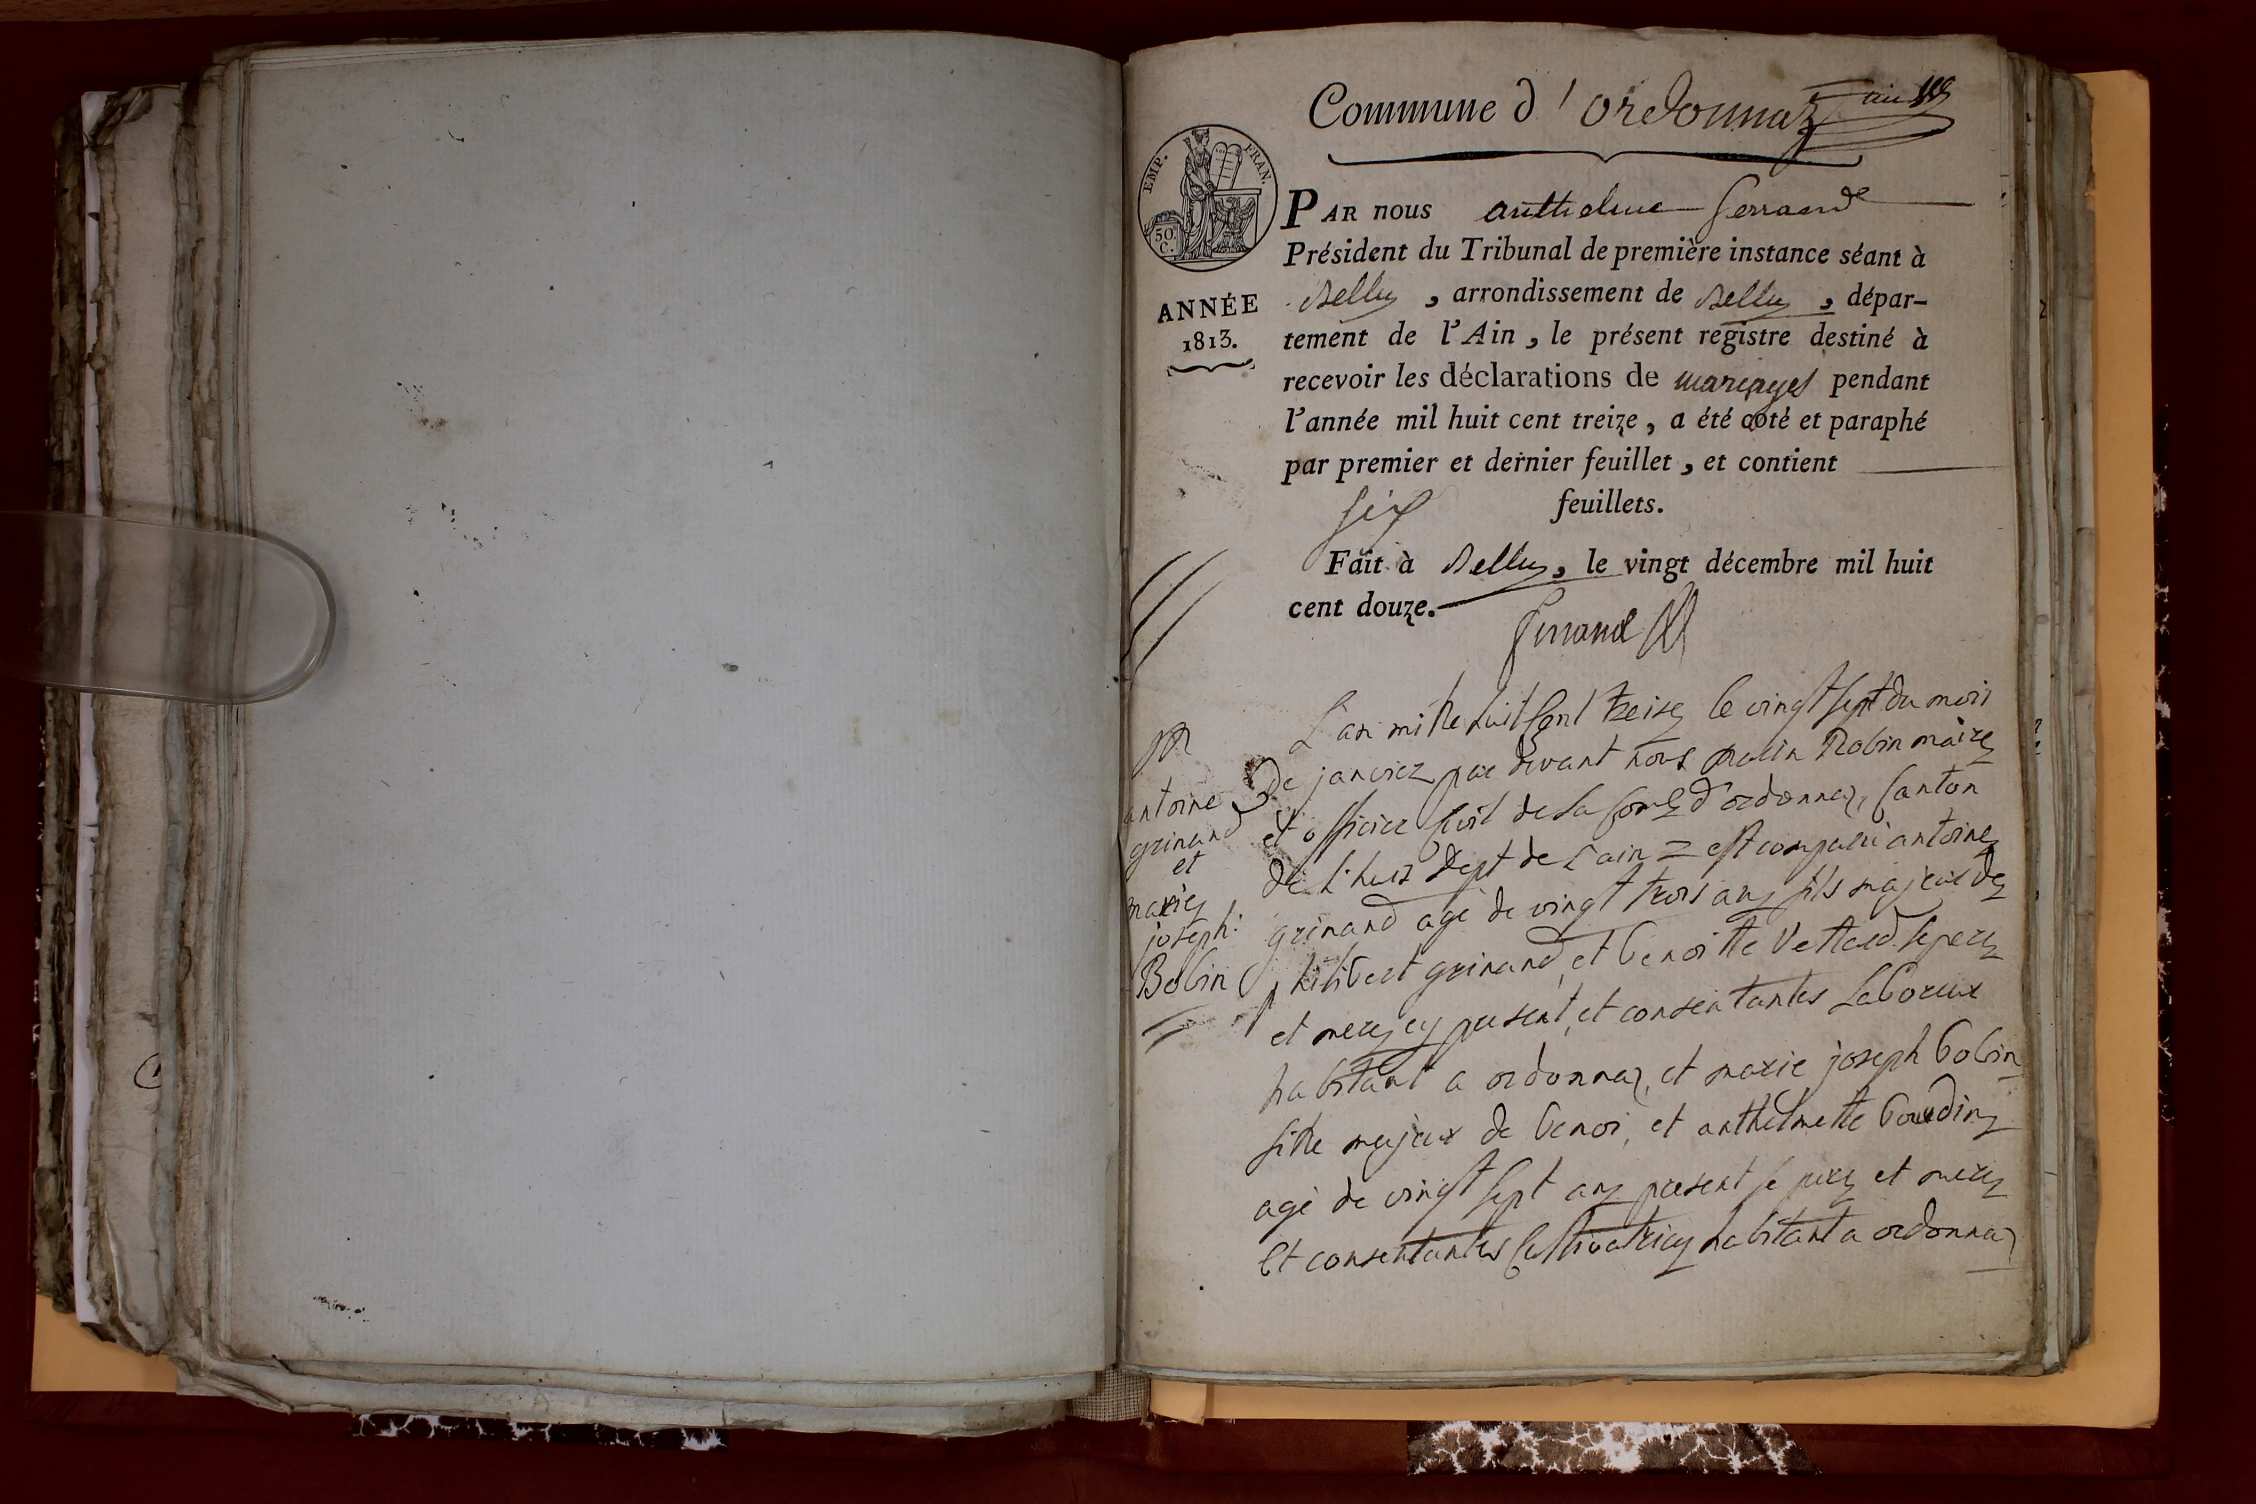 Commune d'ordonnaz
EMP. FRAN.
50. C.
ANNÉE
1813.
PAR nous anthelme ferrand
Président du Tribunal de première instance séant à
Belley, arrondissement de Belley, dépar-
tement de l'Ain, le présent registre destiné à
recevoir les déclarations de mariages pendant
l'année mil huit cent treize, a été coté et paraphé
par premier et dernier feuillet, et contient
six feuillets.
Fait à Belley, le vingt décembre mil huit
cent douze.
ferrand
antoine
grinand
et
marie
joseph:
Bobin
L'an mille huit cent treize le vingt sept du mois
De janvier par devant nous Robin maire
et officier civil de la d'ordonnaz, canton
de l'huis Dept de L'ain = est comparu antoine
grinand agé de vingt trois ans fils majeur de
philibert grinand, et benoitte Vettard se pere
et mere cy present, et consentantes Laboreur
habitant a ordonnaz, et marie joseph bobin
fille majeur de benoi, et anthelmette bourdin
agé de vingt sept ans present se pere et mere
et consentantes Cultivatrice habitant a ordonnaz